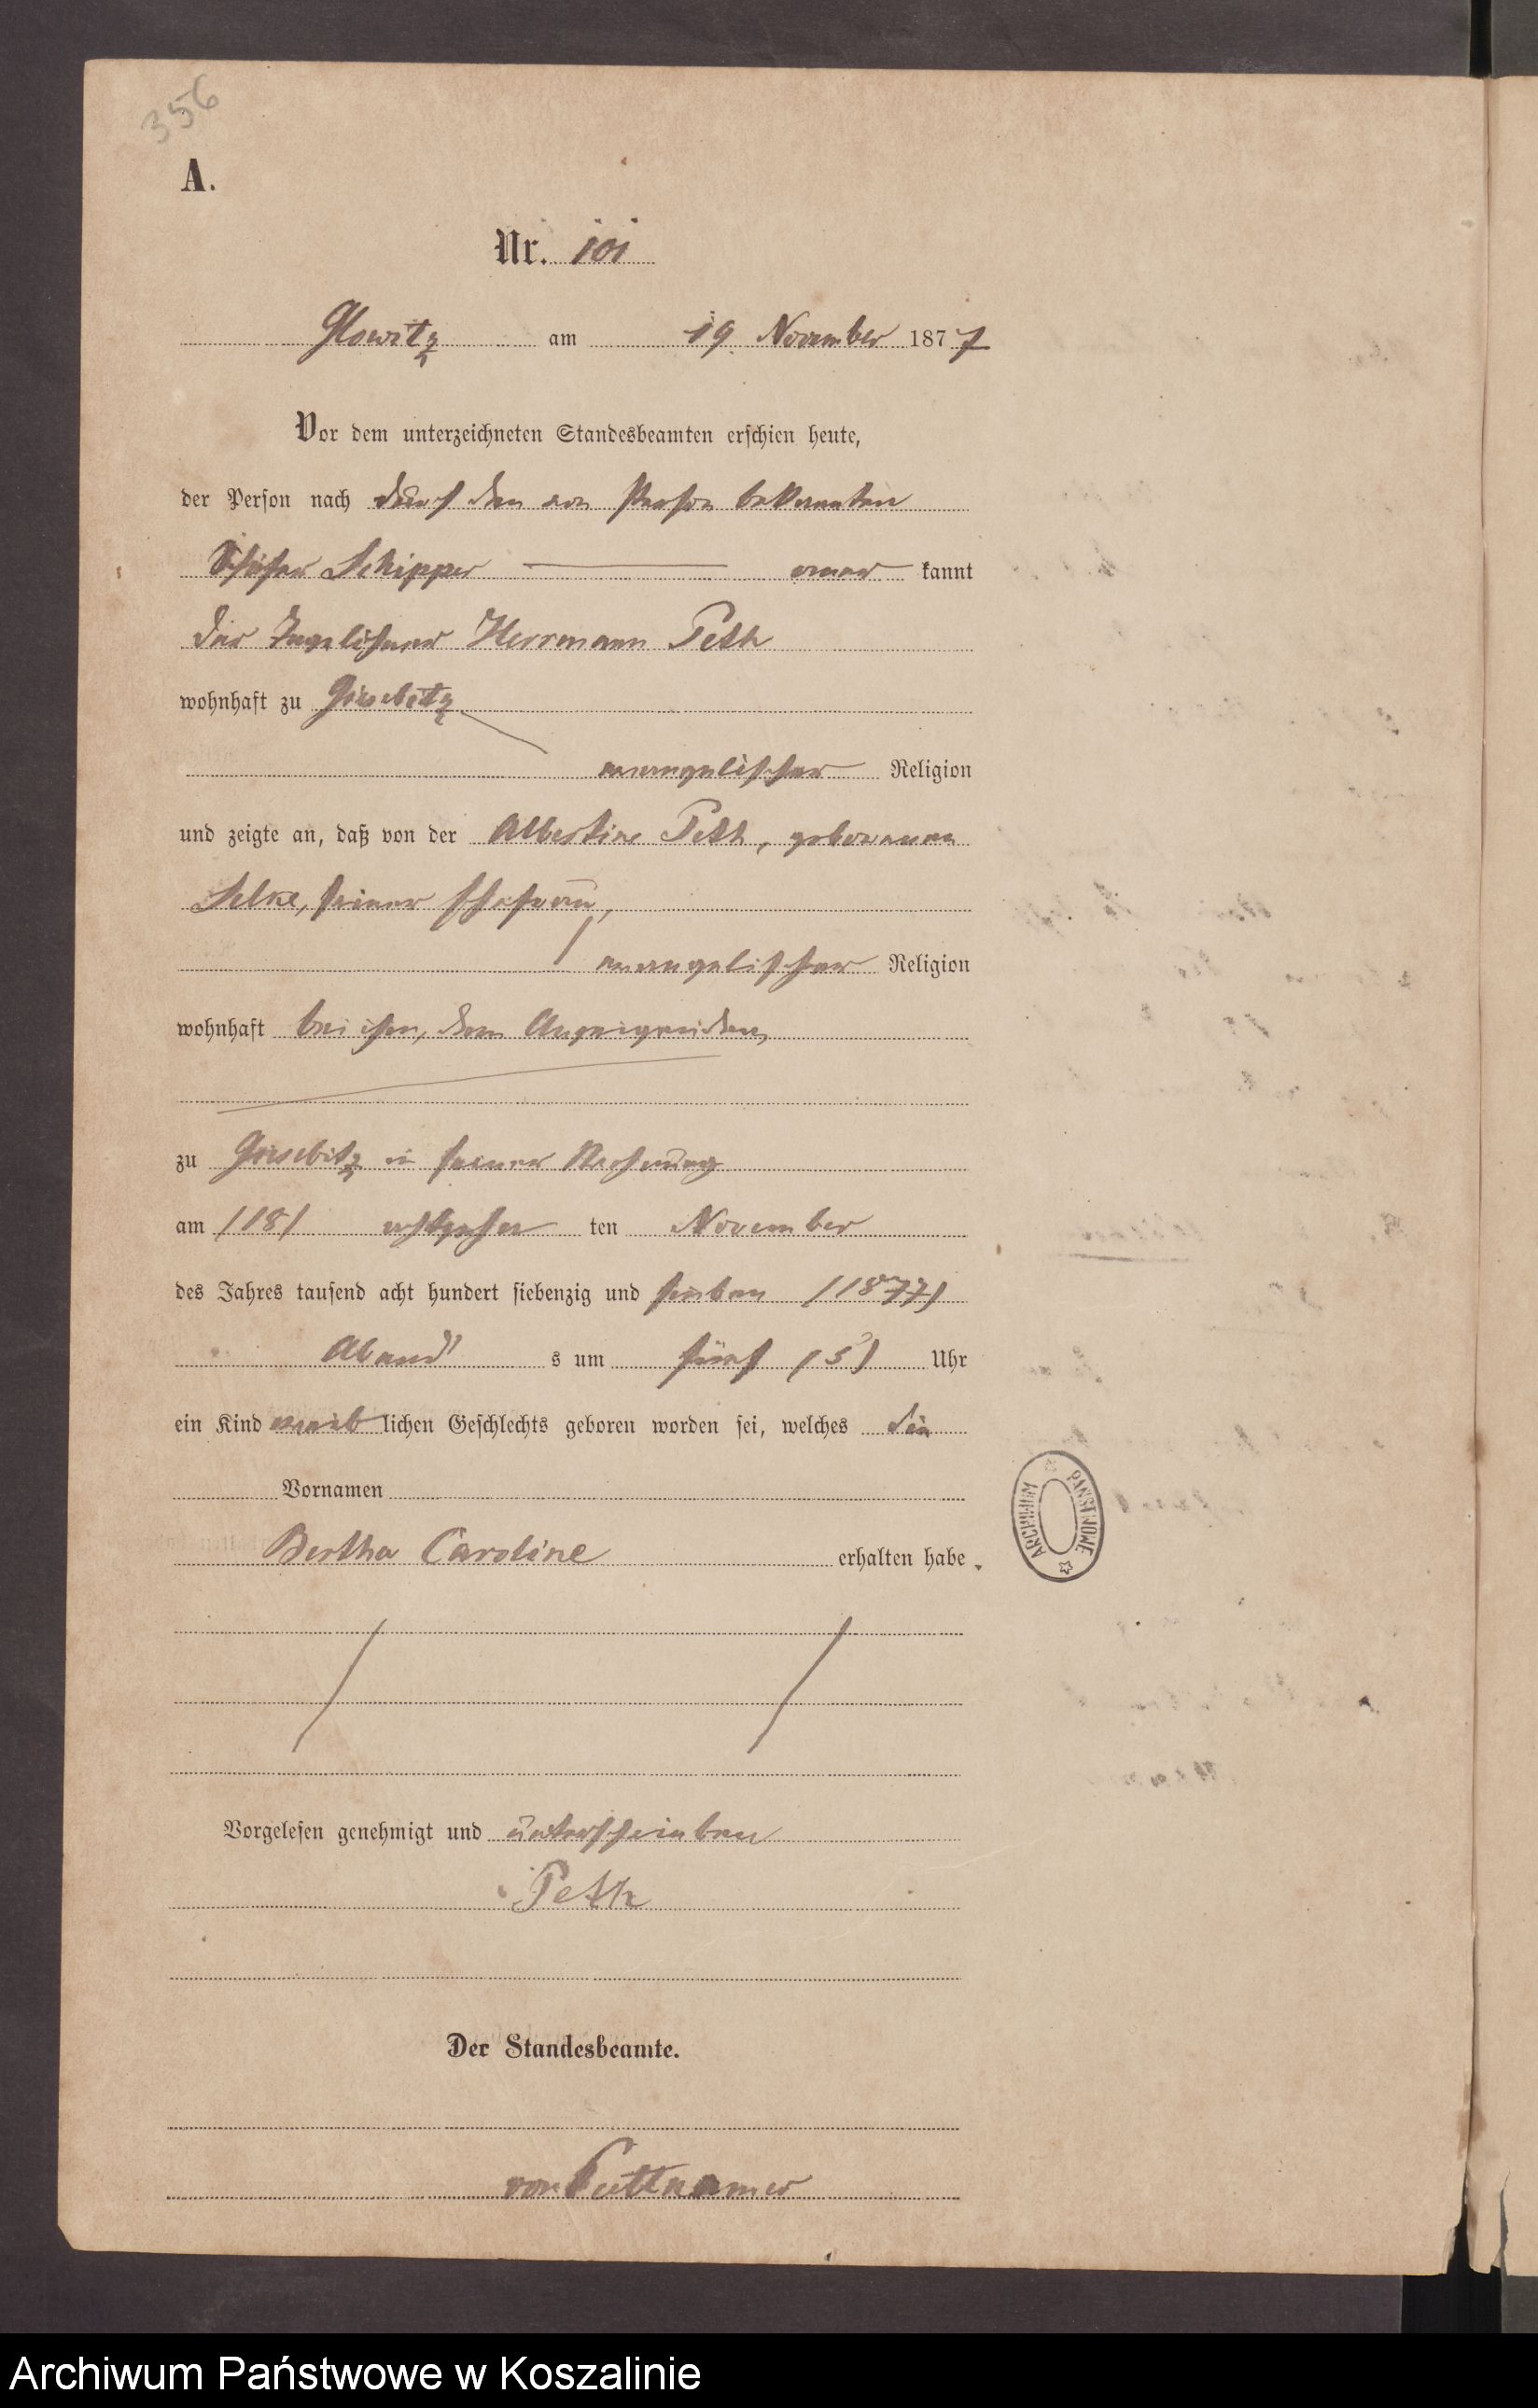 356
A.
Nr. 101
Glowitz am 19 November 1877
Vor dem unterzeichneten Standesbeamten erschien heute,
der Person nach durch den von Person bekannten
Schäfer Schipper aner kannt
der Tagelöhner Herrmann Peth
wohnhaft zu Giesebitz
evangelischer Religion
und zeigte an, daß von der Albertine Peth, geborenen
Selke, seiner Ehefrau,
evangelischer Religion
wohnhaft bei ihm, dem Anzeigenden,
zu Giesebitz in seiner Wohnung
am /18/ achtzehn ten November
des Jahres tausend acht hundert siebenzig und sieben /1877/
Abend s um fünf /5/ Uhr
ein Kind weib lichen Geschlechts geboren worden sei, welches die
Vornamen
Bertha Caroline erhalten habe.
ARCHIWUM PAŃSTWOWE
Vorgelesen genehmigt und unterschrieben
Peth
Der Standesbeamte.
von Puttkamer
Archiwum Państwowe w Koszalinie